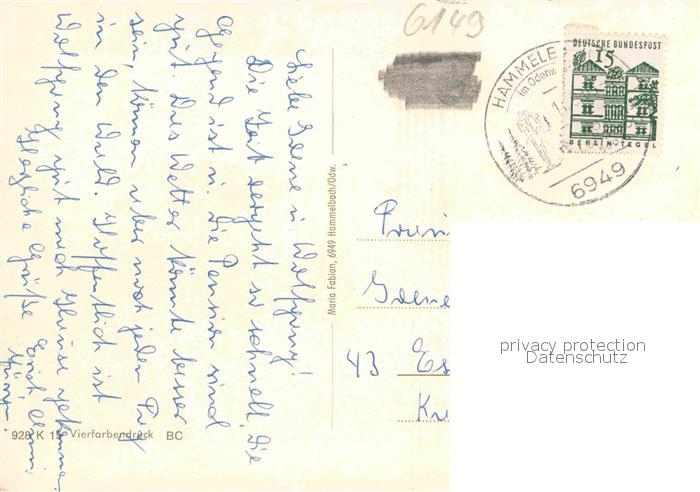 6149
HAMMELB
im Odenw.
6949
DEUTSCHE BUNDESPOST
15
BERLIN-TEGEL
Liebe Irene u. Wolfgang!
Die Zeit vergeht so schnell. Die
Gegend ist u. die Pension sind
gut. Das Wetter könnte besser
sein, können aber noch jeden Tag
in den Wald. Hoffentlich ist
Wolfgang gut nach Hause gekommen.
Herzliche Grüße
Maria Fabian, 6949 Hammelbach/Odw.
Irene
43 Es
928 K 15 Vierfarbendruck BC
privacy protection
Datenschutz